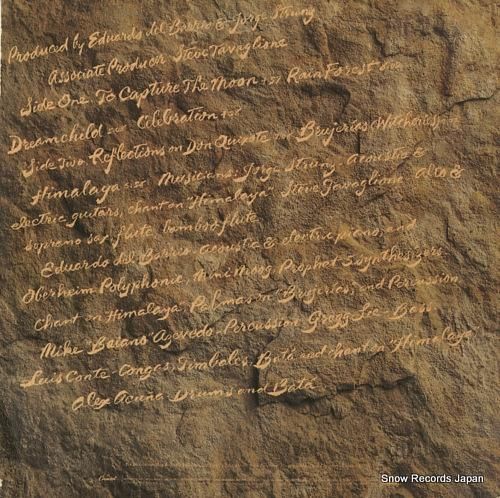 Produced by Eduardo del Barrio & Jorge Strunz
Associate Producer Steve Tavaglione
Side One To Capture The Moon Rain Forest
Dreamchild Celebration
Side Two Reflections on Don Quixote Brujerias (Witchcraft)
Himalaya Musicians: Jorge Strunz - Acoustic &
electric guitars, chant on "Himalaya" Steve Tavaglione - Alto &
Soprano sax, flute, bamboo flute
Eduardo del Barrio - Acoustic & electric piano, and
Oberheim Polyphonic, Mini Moog, Prophet 5 synthesizers
chant on Himalaya, Palmas on Brujerias, and Percussion
Mike "Baiano" Azevedo - Percussion Gregg Lee - Bass
Luis Conte - Congas, Timbales, Batá and chant on "Himalaya"
Alex Acuña - Drums and Batá
Capitol
Snow Records Japan